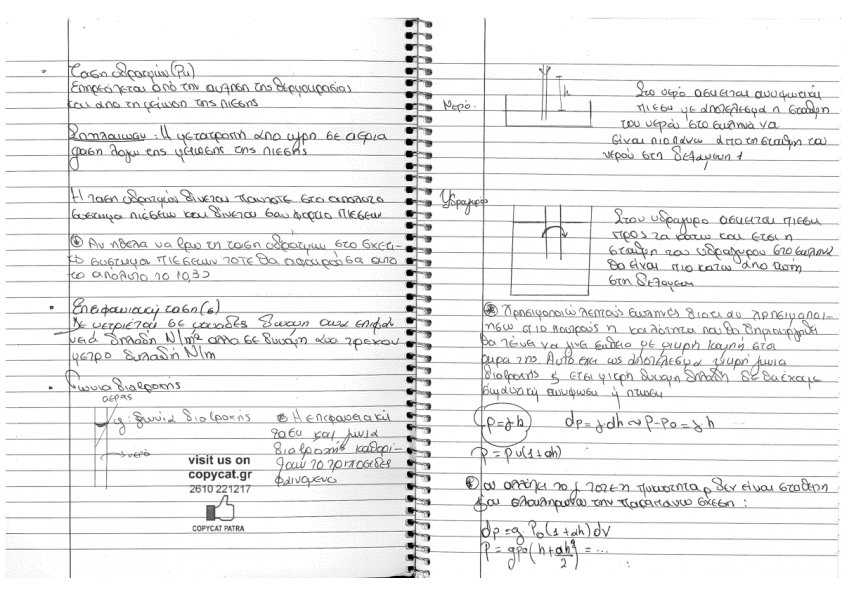 Τάση υδρατμών (Pv)
Επηρεάζεται από την αύξηση της θερμοκρασίας
και από τη μείωση της πίεσης
Σπηλαίωση: Η μετατροπή από υγρή σε αέρια
φάση λόγω της μείωσης της πίεσης
Η τάση υδρατμών δίνεται πάντοτε στο απόλυτο
σύστημα πιέσεων και δίνεται σαν φορτίο πιέσεων
Αν ήθελα να βρω τη τάση υδρατμών στο σχετι-
κό σύστημα πιέσεων τότε θα αφαιρούσα απο
το απόλυτο το 10,33
Επιφανειακή τάση (σ)
μετριέται σε μονάδες δύναμη επιφά
νεια δηλαδή N/m² αλλα σε δύναμη ανα τρέχον
μέτρο δηλαδή N/m
Γωνία διαβροχής
αέρας
φ: γωνία διαβροχής
νερό
Η επιφανειακή
τάση και γωνία
διαβροχής καθορί-
ζουν το τριχοειδές
φαινόμενο
visit us on
copycat.gr
2610 221217
COPYCAT PATRA
Νερό:
h
Στο νερό ασκείται ανυψωτική
πίεση με αποτέλεσμα η στάθμη
του νερού στο σωλήνα να
είναι πιο πάνω από τη στάθμη του
νερού στη δεξαμενή
Υδράργυρος
Στον υδράργυρο ασκείται πίεση
προς τα κάτω και έτσι η
στάθμη του υδραργύρου στο σωλήνα
θα είναι πιο κάτω απο αυτή
στη δεξαμενή
Χρησιμοποιώ λεπτούς σωλήνες διότι αν χρησιμοποι-
ήσω πιο χοντρούς η κοιλότητα που θα δημιουργηθεί
θα τείνει να γίνει επίπεδο με μικρή καμπή στα
άκρα της. Αυτό έχει ως αποτέλεσμα μικρή γωνία
διαβροχής και έτσι μικρή δύναμη δηλαδή δε θα έχουμε
σημαντική ανύψωση ή πτώση
p=γh dp=γ·dh ⇝ p-p₀=γh ...
ρ=ρ₀(1+αh)
αν αλλάζει το γ τότε η πυκνότητα ρ δεν είναι σταθερή
και ολοκληρώνω την παραπάνω σχέση:
dp=g·ρ₀(1+αh)dν
P=gρ₀(h+αh²/2)=...